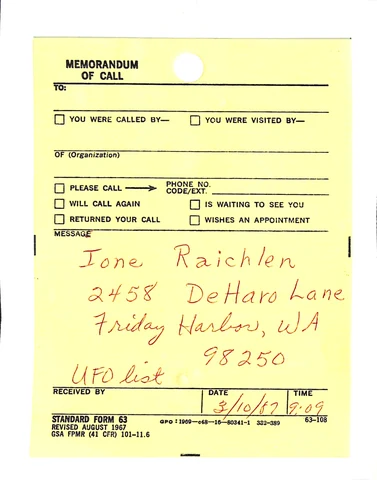 MEMORANDUM
OF CALL
TO:
YOU WERE CALLED BY— YOU WERE VISITED BY—
OF (Organization)
PLEASE CALL PHONE NO.
CODE/EXT.
WILL CALL AGAIN IS WAITING TO SEE YOU
RETURNED YOUR CALL WISHES AN APPOINTMENT
MESSAGE
Ione Raichlen
2458 DeHaro Lane
Friday Harbor, WA
98250
UFO list
RECEIVED BY DATE TIME
3/10/87 9:09
STANDARD FORM 63
REVISED AUGUST 1967
GSA FPMR (41 CFR) 101-11.6
GPO : 1969—c48—16—80341-1 332-389
63-108